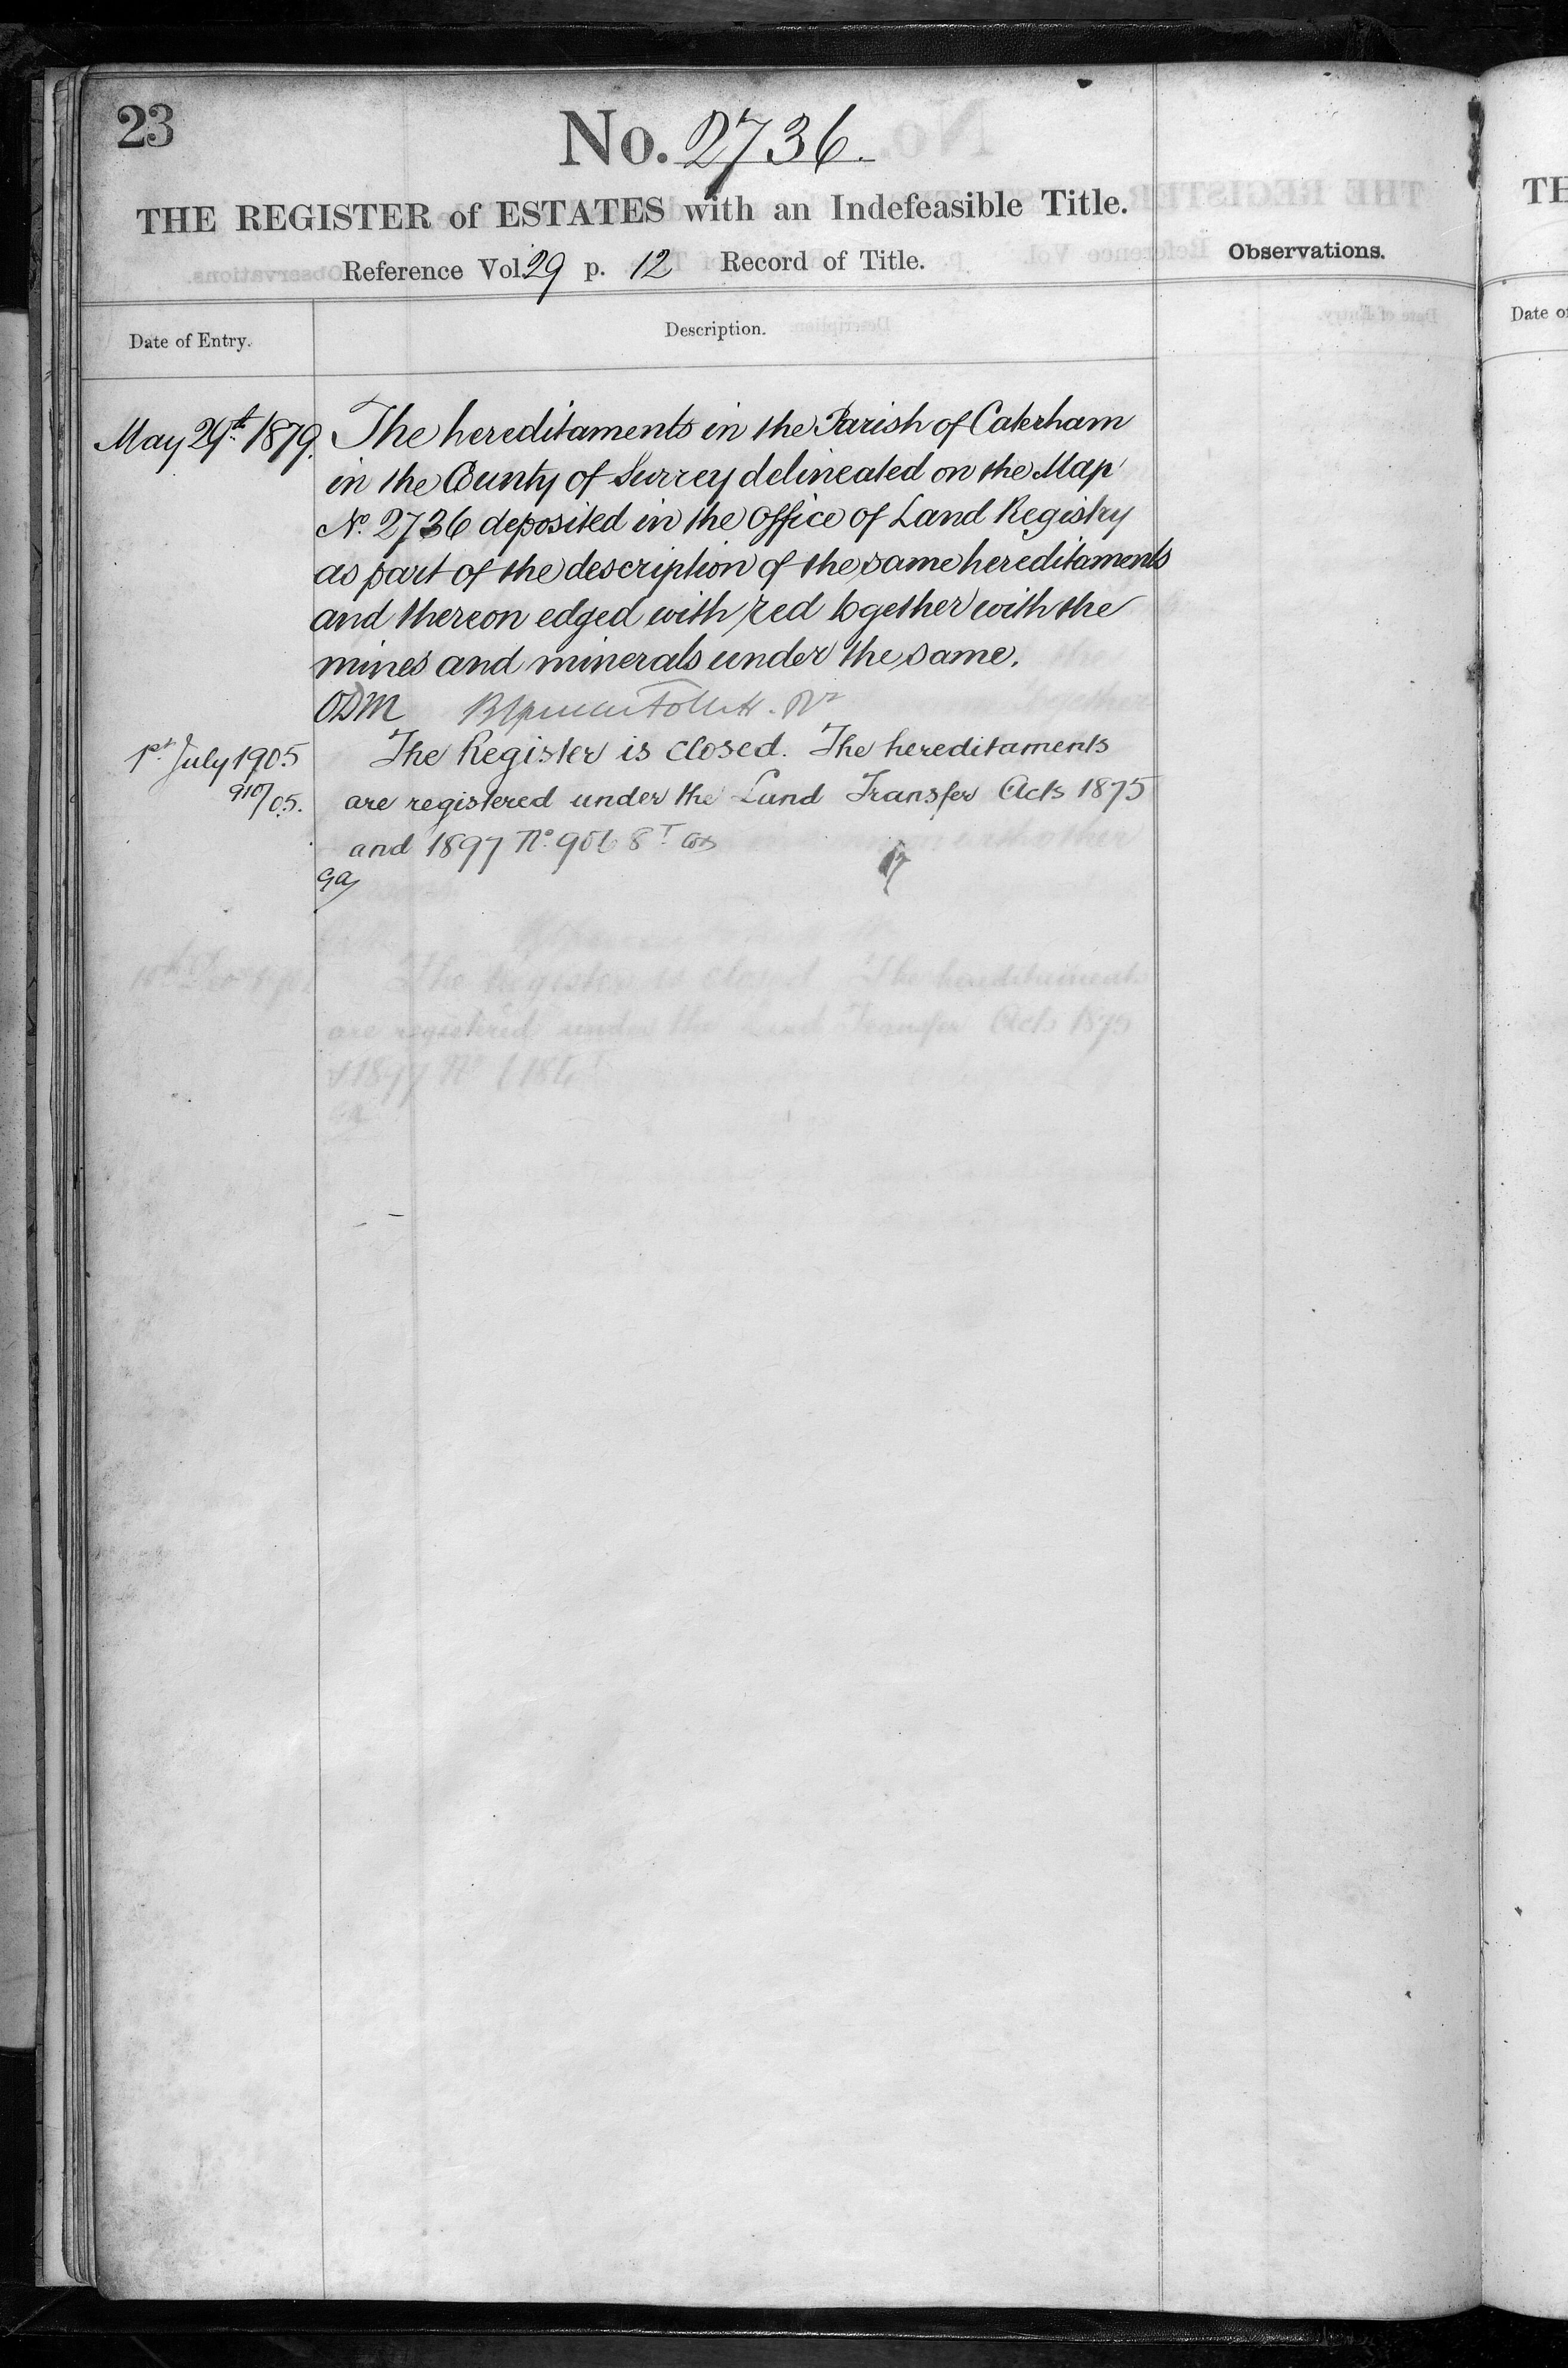 23
No. 2736.
THE REGISTER of ESTATES with an Indefeasible Title.
Reference Vol. 29 p. 12 Record of Title.
Observations.
Date of Entry.
Description.
May 29th. 1879. The hereditaments in the Parish of Caterham
in the County of Surrey delineated on the Map
No. 2736 deposited in the Office of Land Registry
as part of the description of the same hereditaments
and thereon edged with red together with the
mines and minerals under the same.
ODM
1st July 1905 The Register is closed. The hereditaments
910/05. are registered under the Land Transfer Acts 1875
and 1897 No.
GA
TH
Date of
The Register is closed The hereditaments
are registered under the Land Transfer Acts 1875